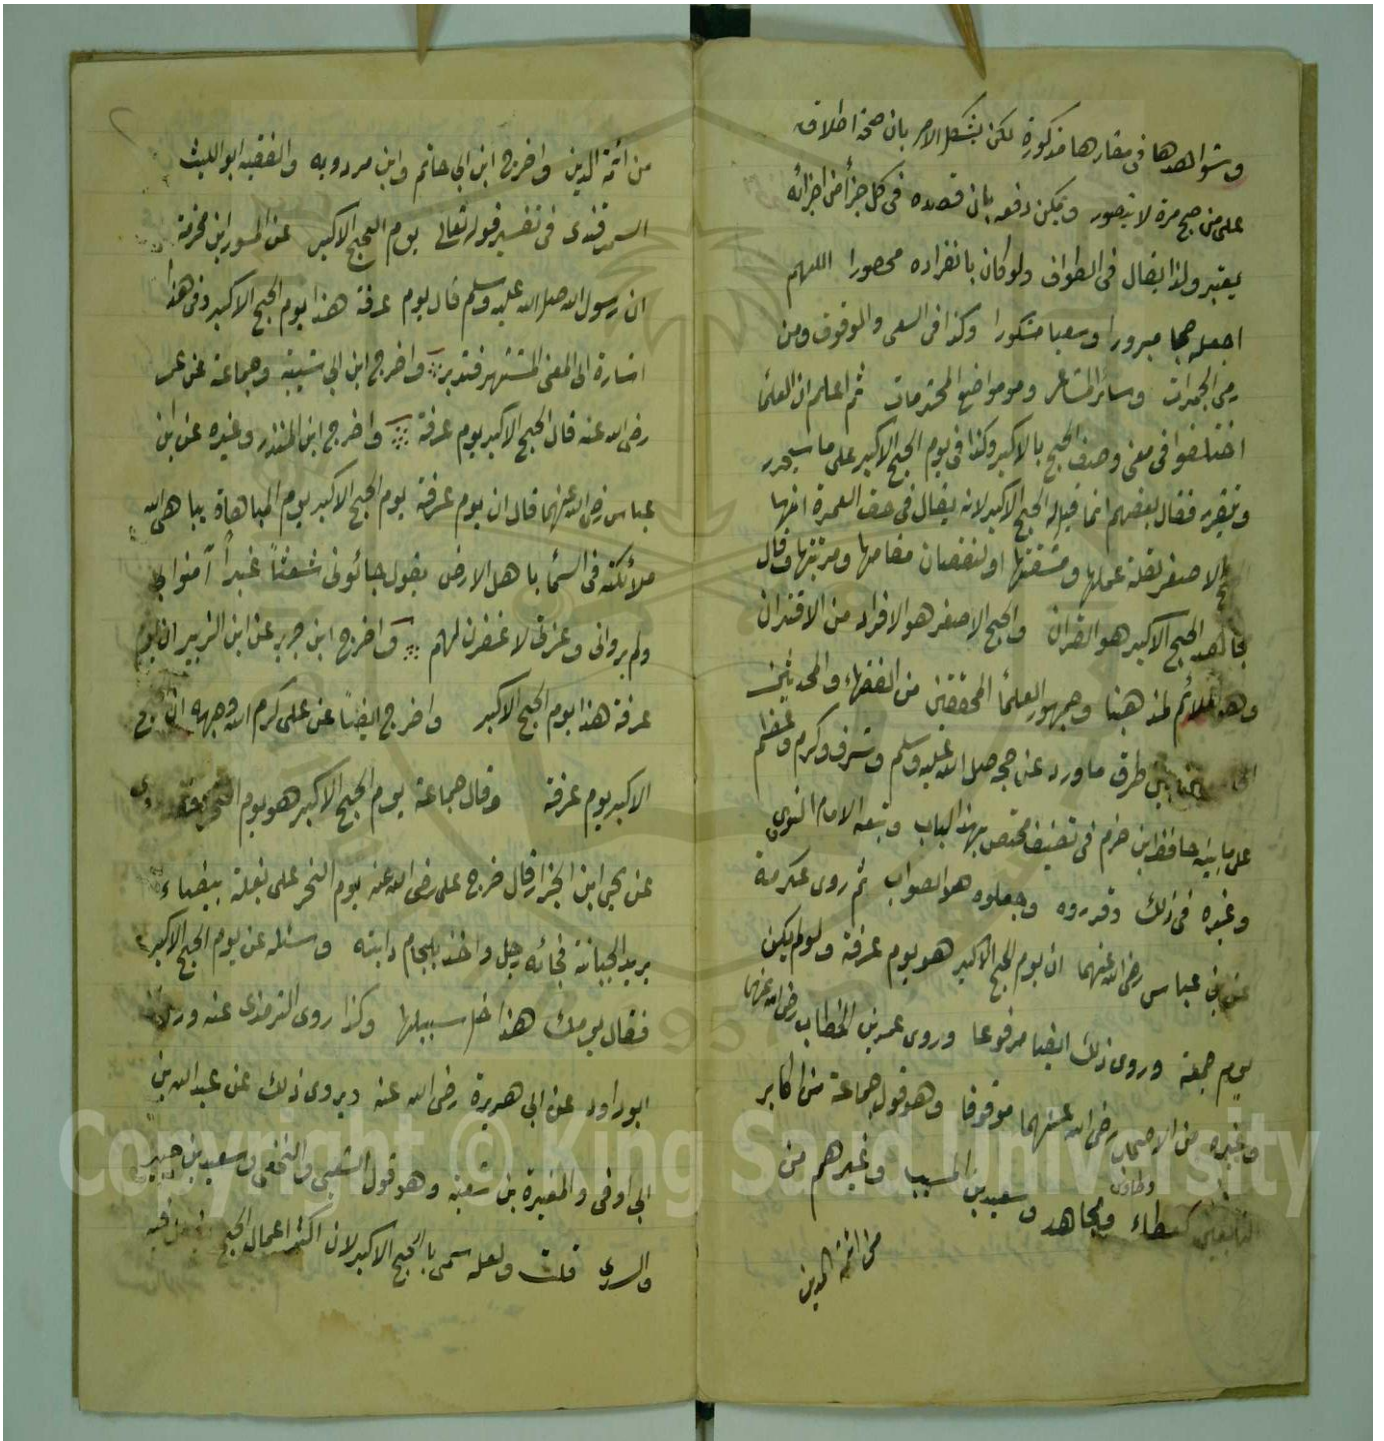 وشواهدها فى مقارها مذكورة لكن يشكل الامر بان صحة اطلاق
على من حج مرة لا يتصور ويمكن دفعه بان قصده فى كل جزأ من اجزائه
يعتبر ولذا يقال فى الطواف ولو كان بانفراده محصورا اللهم
اجعله حجا مبرورا وسعيا مشكورا وكذا فى السعى والوقوف ومن
رمى الجمرات وسائر المشاعر ومواضع المحترمات ثم اعلم ان العلمأ
اختلفوا فى معنى وصف الحج بالاكبر وكذا فى يوم الحج الاكبر على ما سيحرر
وتقرر فقال بعضهم انما قيل له الحج الاكبر لانه يقال فى حق العمرة انها
الحج الاصغر لقلة عملها ومشقتها او لنقصان مقامها ومرتبتها وقال
مجاهد الحج الاكبر هو القران والحج الاصغر هو الافراد من الاقتران
وهو الملائم لمذهبنا وجمهور العلمأ المحققين من الفقهاء والمحدثين
طرق ما ورد عن حجه صلى الله عليه وسلم وشرف وكرم وعظم
على ما بينه حافظ ابن حزم فى تصنيف مختص بهذا الباب وتبعه الامام النووى
وغيره فى ذلك وقرروه وجعلوه هو الصواب ثم روى عكرمة
عن بن عباس رضى الله عنهما ان يوم الحج الاكبر هو يوم عرفة ولو لم يكن
يوم جمعة وروى ذلك ايضا مرفوعا وروى عمر بن الخطاب رضى الله عنهما
وغيره من الاصحاب رضى الله عنهما موقوفا وهو قول جماعة من اكابر
التابعين كعطاء وطاوس ومجاهد وسعيد بن المسيب وغيرهم من
من ائمة الدين
من ائمة الدين واخرج ابن ابى حاتم وابن مردويه والفقيه ابو الليث
السمرقندى فى تفسير قوله تعالى يوم الحج الاكبر عن المسور ابن مخرمة
ان رسول الله صلى الله عليه وسلم قال يوم عرفة هذا يوم الحج الاكبر وفى هذا
اشارة الى المعنى المشتهر فتدبر واخرج ابن ابى شيبة وجماعة عن عمر
رضى الله عنه قال الحج الاكبر يوم عرفة واخرج ابن المنذر وغيره عن ابن
عباس رضى الله عنهما قال ان يوم عرفة يوم الحج الاكبر يوم المباهاة يباهى الله
ملائكته فى السمأ باهل الارض يقول جائونى شعثاً غبراً آمنوا بى
ولم يرونى وعزتى لاغفرن لهم واخرج ابن جرير عن ابن الزبير ان يوم
عرفة هذا يوم الحج الاكبر واخرج ايضاً عن على كرم الله وجهه ان الحج
الاكبر يوم عرفة وقال جماعة يوم الحج الاكبر هو يوم النحر
عن يحيى ابن الجزار قال خرج على رضى الله عنه يوم النحر على بغلة بيضاء
يريد الجبانة فجائه رجل واخذ بلجام دابته وسئله عن يوم الحج الاكبر
فقال يومك هذا خل سبيلها وكذا روى الترمذى عنه ورواه
ابو داود عن ابى هريرة رضى الله عنه ويروى ذلك عن عبد الله بن
ابى اوفى والمغيرة بن شعبة وهو قول الشعبى والنخعى وسعيد بن جبير
والسدى قلت ولعله سمى بالحج الاكبر لان اكثر اعمال الحج